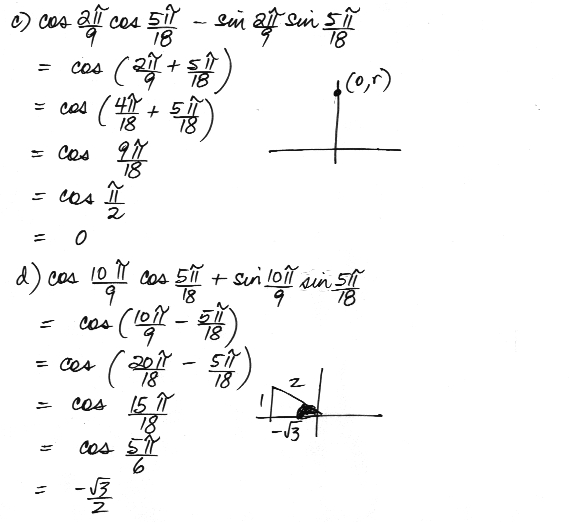 c) cos 2π/9 cos 5π/18 - sin 2π/9 sin 5π/18
= cos (2π/9 + 5π/18)
(0,r)
= cos (4π/18 + 5π/18)
= cos 9π/18
= cos π/2
= 0
d) cos 10π/9 cos 5π/18 + sin 10π/9 sin 5π/18
= cos (10π/9 - 5π/18)
= cos (20π/18 - 5π/18)
2
= cos 15π/18
1
-√3
= cos 5π/6
= -√3/2